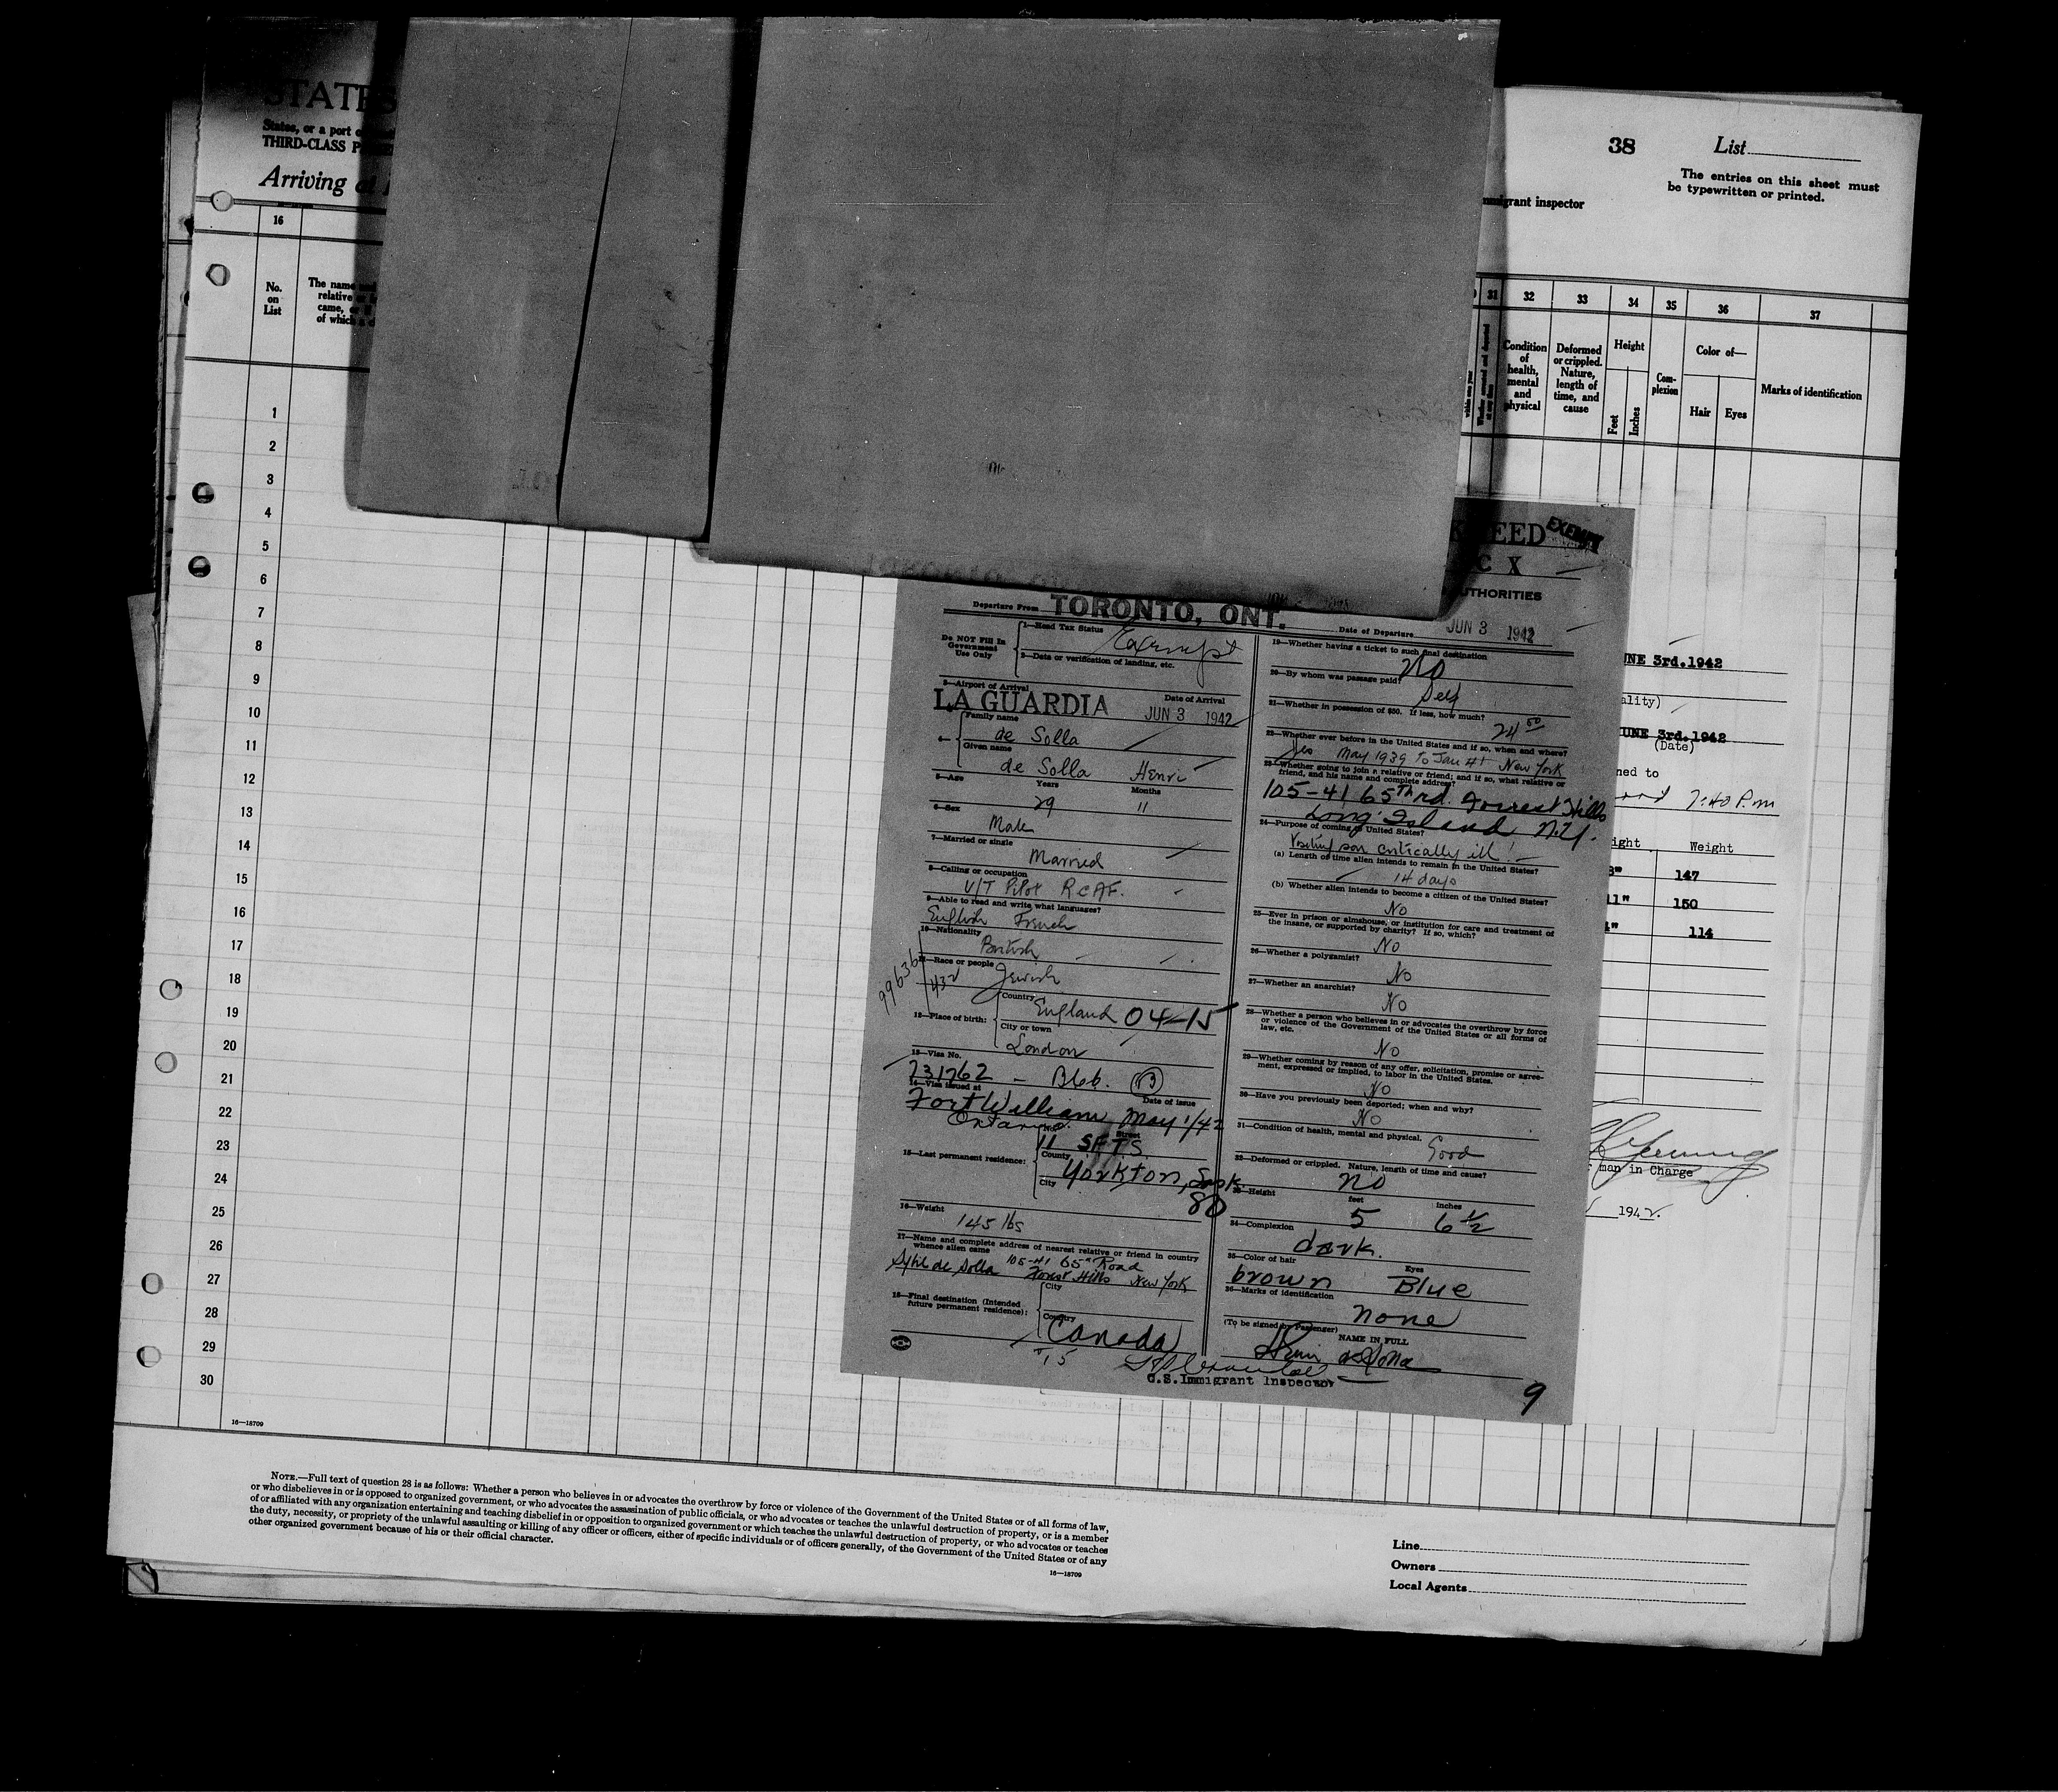 STATES
States, or a port o
THIRD-CLASS P
Arriving at
16
No.
on
List
The name
relative
came,
of which a
1
2
3
4
5
6
7
8
9
10
11
12
13
14
15
16
17
18
19
20
21
22
23
24
25
26
27
28
29
30
16—18709
38
List
The entries on this sheet must
be typewritten or printed.
migrant inspector
31
32
33
34
35
36
37
Condition
of
health,
mental
and
physical
Deformed
or crippled.
Nature,
length of
time, and
cause
Height
Feet
Inches
Com-
plexion
Color of—
Hair
Eyes
Marks of identification
EED
EXEMPT
C X
UTHORITIES
Departure From TORONTO, ONT.
Date of Departure JUN 3 1942
Do NOT Fill In
Government
Use Only
1—Head Tax Status
Exempt
2—Data or verification of landing, etc.
3—Airport of Arrival
Date of Arrival
LA GUARDIA JUN 3 1942
4— Family name
de Solla
Given name
de Solla Henri
5—Age
Years
Months
29 11
6—Sex
Male
7—Married or single
Married
8—Calling or occupation
U/T Pilot RCAF.
9—Able to read and write what languages?
English French
10—Nationality
British
11—Race or people
Jewish
99636
432
12—Place of birth:
Country
England 04-15
City or town
London
13—Visa No.
731762 - B6b. (3)
14—Visa issued at
Date of issue
Fort William May 1/42
Ontario.
15—Last permanent residence:
Street
11 SFTS
County
Yorkton, Sask.
City
80
16—Weight
145 lbs
17—Name and complete address of nearest relative or friend in country
whence alien came
105-41 65th Road
Sybil de Solla Forest Hills New York
18—Final destination (Intended
future permanent residence):
City
Country
Canada
15
U.S. Immigrant Inspector
19—Whether having a ticket to such final destination
No
20—By whom was passage paid?
Self
21—Whether in possession of $50. If less, how much?
24 50
22—Whether ever before in the United States and if so, when and where?
Yes May 1939 to Jan 41 New York
23—Whether going to join a relative or friend; and if so, what relative or
friend, and his name and complete address?
105-41 65th rd. Forrest Hills
Long Island N.Y.
24—Purpose of coming to United States?
Visiting son critically ill!
(a) Length of time alien intends to remain in the United States?
14 days
(b) Whether alien intends to become a citizen of the United States?
No
25—Ever in prison or almshouse, or institution for care and treatment of
the insane, or supported by charity? If so, which?
No
26—Whether a polygamist?
No
27—Whether an anarchist?
No
28—Whether a person who believes in or advocates the overthrow by force
or violence of the Government of the United States or all forms of
law, etc.
No
29—Whether coming by reason of any offer, solicitation, promise or agree-
ment, expressed or implied, to labor in the United States.
No
30—Have you previously been deported; when and why?
No
31—Condition of health, mental and physical.
Good
32—Deformed or crippled. Nature, length of time and cause?
no
33—Height
feet
inches
5 6 ½
34—Complexion
dark.
35—Color of hair
Eyes
brown Blue
36—Marks of identification
none
(To be signed by Passenger)
NAME IN FULL
Henri de Solla
9
UNE 3rd.1942
ality)
UNE 3rd.1942
(Date)
ned to
7:40 P.m
ight Weight
8" 147
11" 150
114
man in Charge
1942.
NOTE.—Full text of question 28 is as follows: Whether a person who believes in or advocates the overthrow by force or violence of the Government of the United States or of all forms of law,
or who disbelieves in or is opposed to organized government, or who advocates the assassination of public officials, or who advocates or teaches the unlawful destruction of property, or is a member
of or affiliated with any organization entertaining and teaching disbelief in or opposition to organized government or which teaches the unlawful destruction of property, or who advocates or teaches
the duty, necessity, or propriety of the unlawful assaulting or killing of any officer or officers, either of specific individuals or of officers generally, of the Government of the United States or of any
other organized government because of his or their official character.
16—18709
Line
Owners
Local Agents